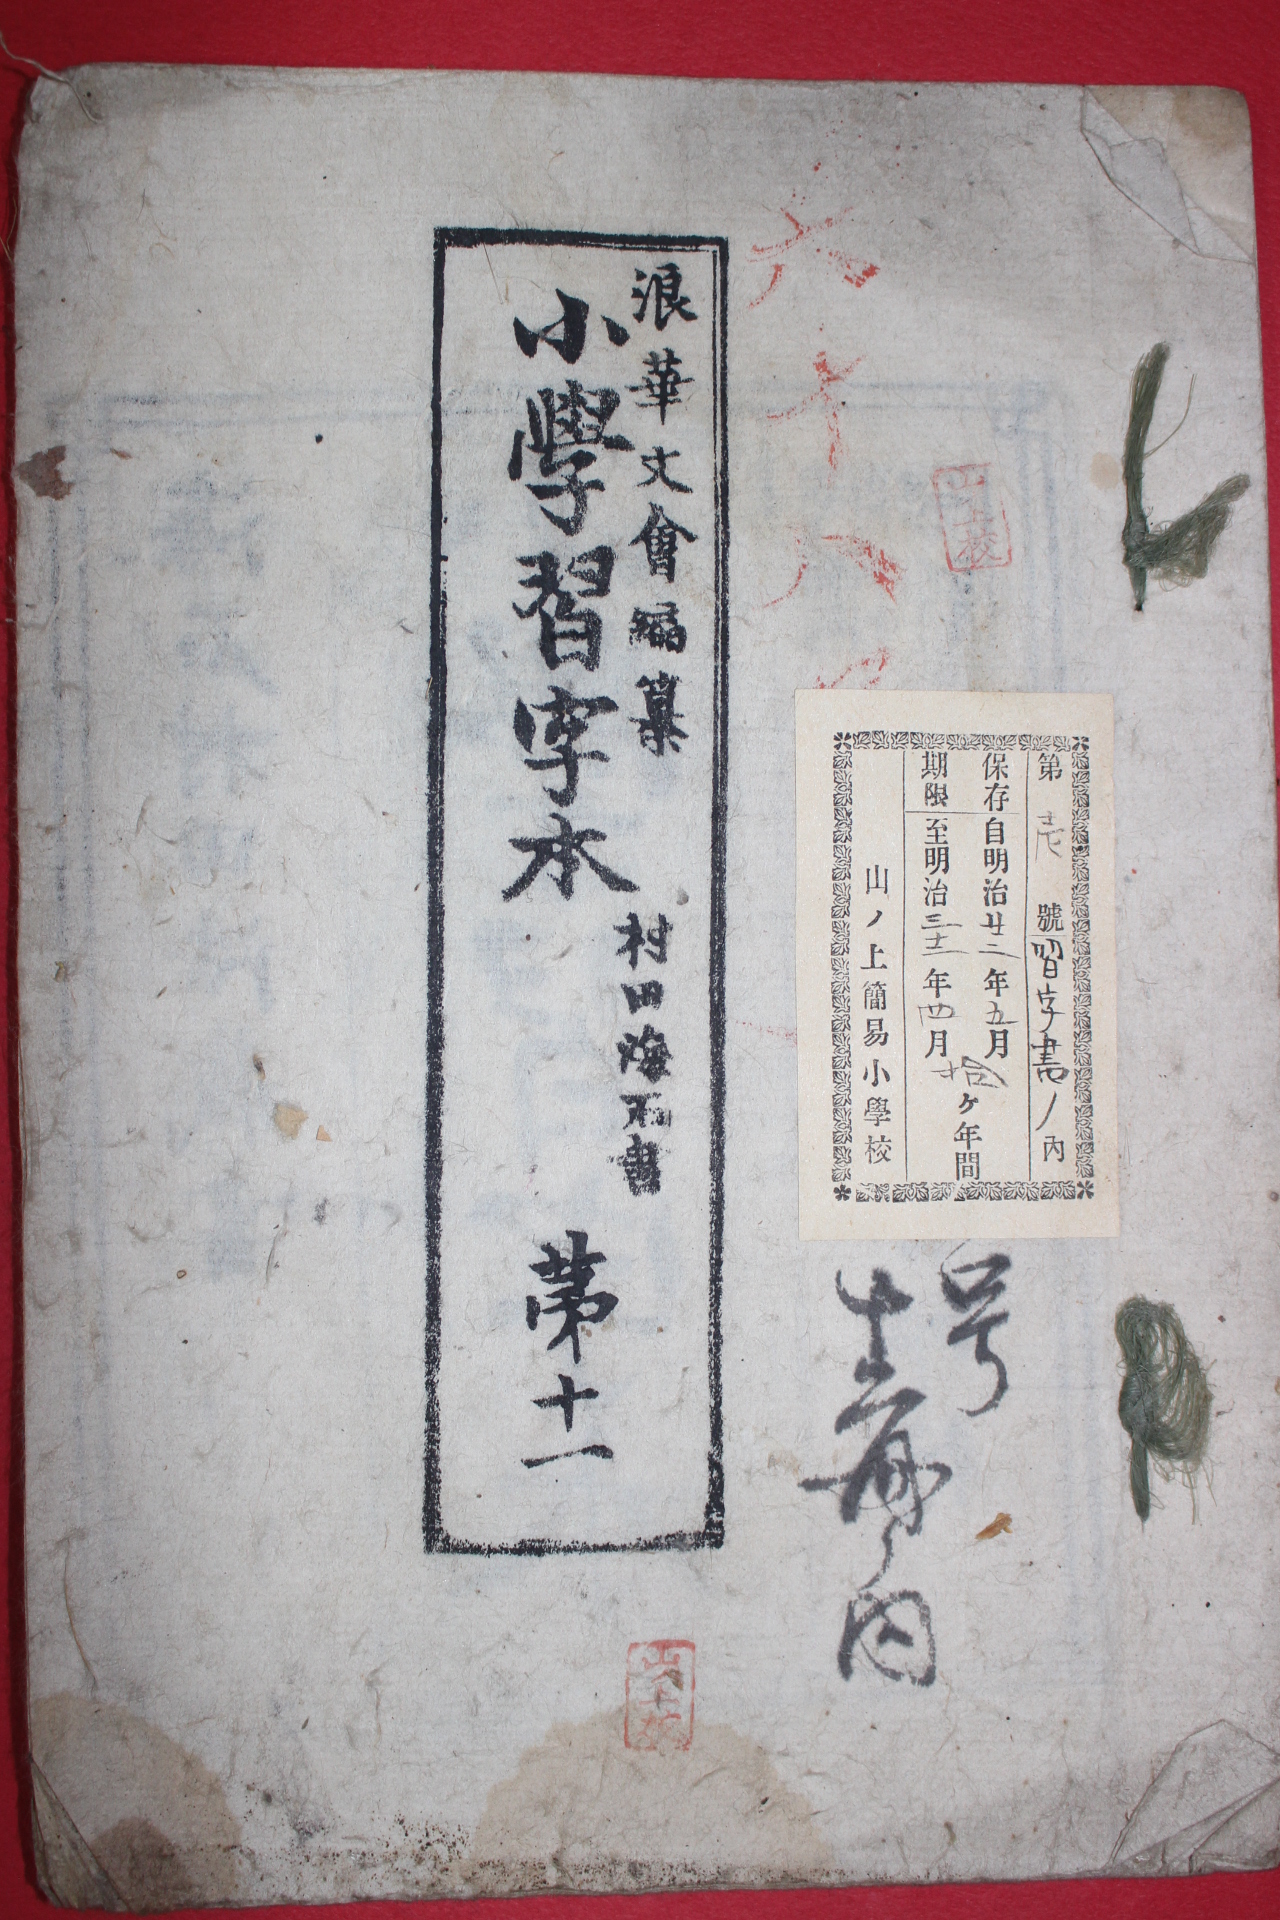 六十八
山上校
第 壱 號 習字書ノ內
保存期限
自明治廿二年五月
至明治三十二年四月
拾ヶ年間
山ノ上簡易小學校
号
內
浪華文會編纂
小學習字本
村田海石書
第十一
山上校